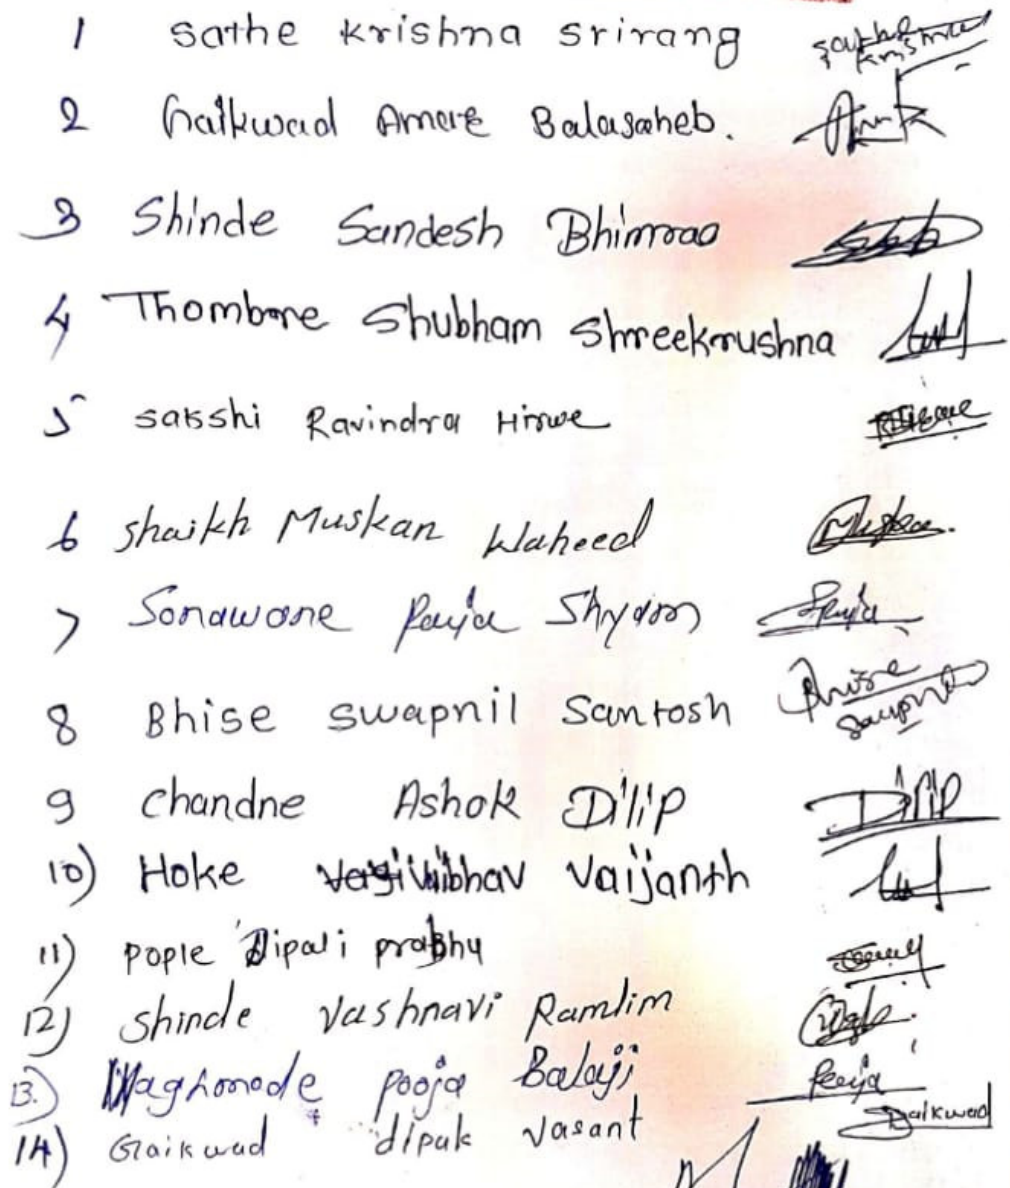 1 Sathe Krishna Srirang Sathe Krishna
2 Gaikwad Balasaheb.
3 Shinde Sandesh Bhimrao
4 Thombare Shubham Shreekrushna
5 Sakshi Ravindra Hirwe
6 Shaikh Muskan Waheed Muskan.
7 Sonawane Puja Shyam Puja
8 Bhise Swapnil Santosh Bhise Swapnil
9 Chandne Ashok Dilip Dilip
10) Hoke Vaibhav Vaijanth
11) Pople Dipali Prabhu
12) Shinde Vashnavi Ramlim
13.) Waghmode Pooja Balaji Pooja
14) Gaikwad dipak Vasant Gaikwad